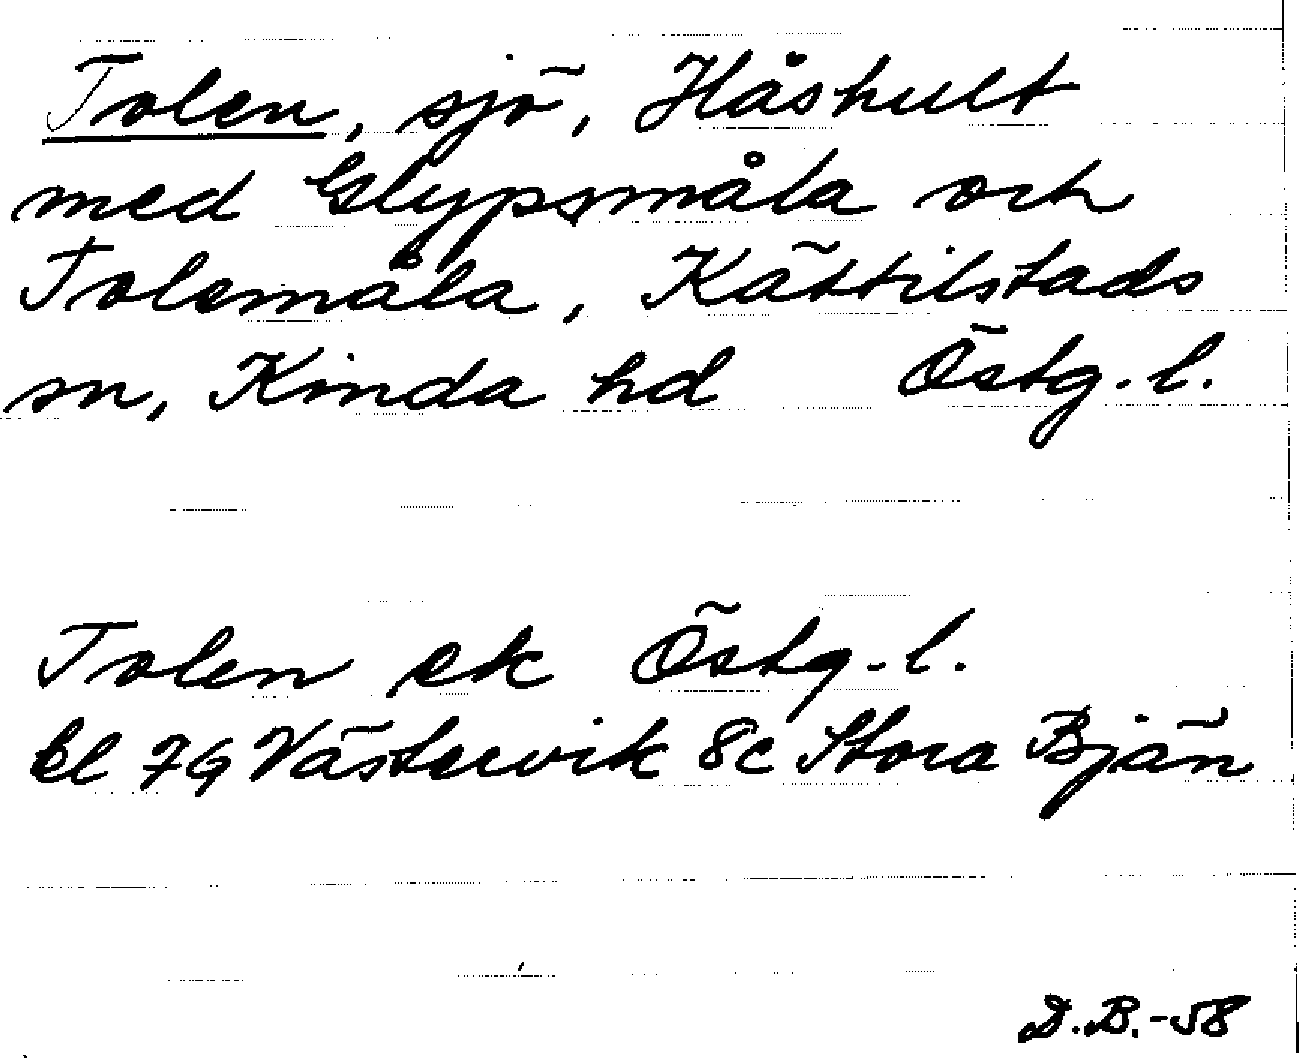 Tolen, sjö, Håshult
med Glypsmåla och
Tolemåla, Kättilstads
sn, Kinda hd Östg. l.
Tolen ek Östg. l.
bl 7G Västervik 8c Stora Bjän
D.B.-58